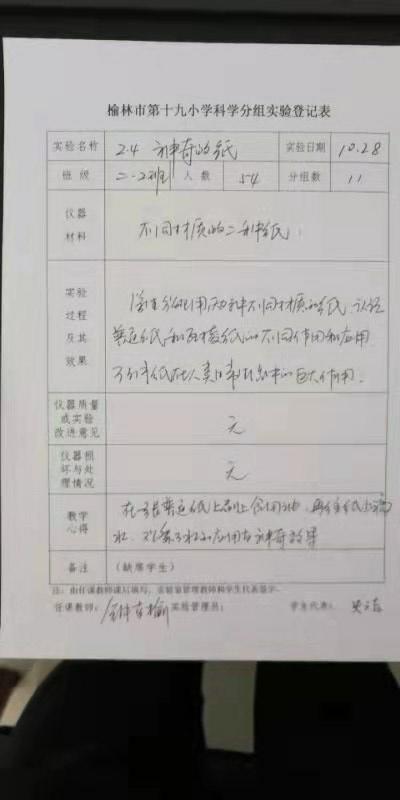 榆林市第十九小学科学分组实验登记表
实验名称 2.4 神奇的纸 实验日期 10.28
班级 二.2班 人数 54 分组数 11
仪器
材料
不同材质的二种纸
实验
过程
及其
效果
学生分组用两种不同材质的纸,认识
普通纸和瓦楞纸的不同作用和应用
了解纸在人类日常生活中的巨大作用.
仪器质量
或实验
改进意见
无
仪器损
坏与处
理情况
无
教学
心得
在张普通纸上 食用油 纸上滴
水
备注 (缺席学生)
注:由任课教师课后填写,实验室管理教师和学生代表签字.
任课教师: 实验管理员: 学生代表: